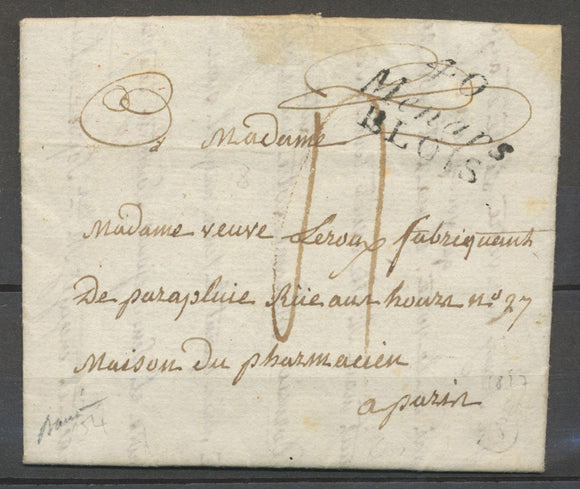 40
Menars
BLOIS
a Madame
Madame veuve Leroux fabriquant
De parapluie Rüe aux hours n° 27
Maison du pharmacien
a paris
1827